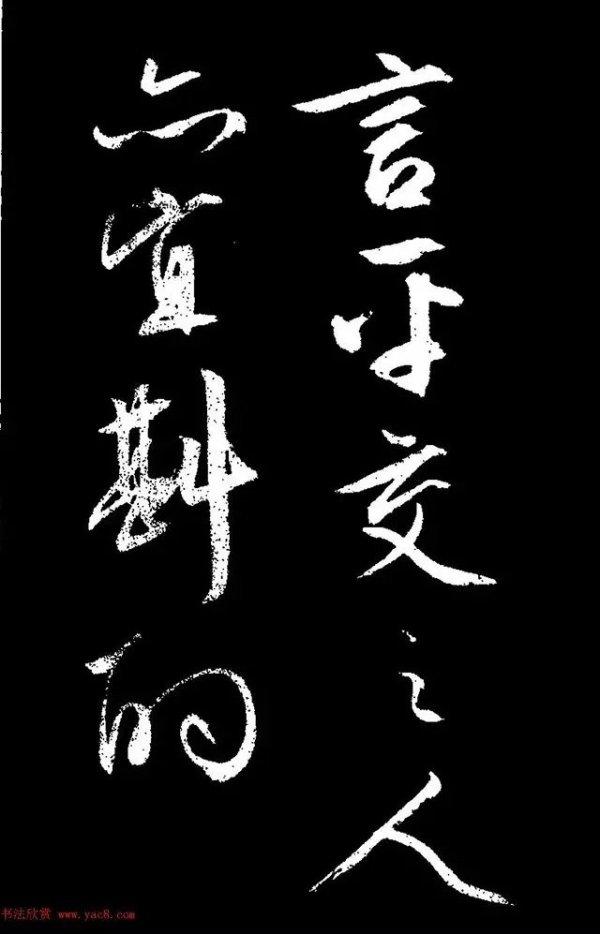 言平交之人
亦宜斟酌
书法欣赏 www.yac8.com